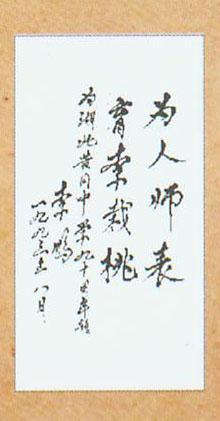 为人师表
育李栽桃
为湖北黄冈中学九十周年题
李鹏
一九九三年八月